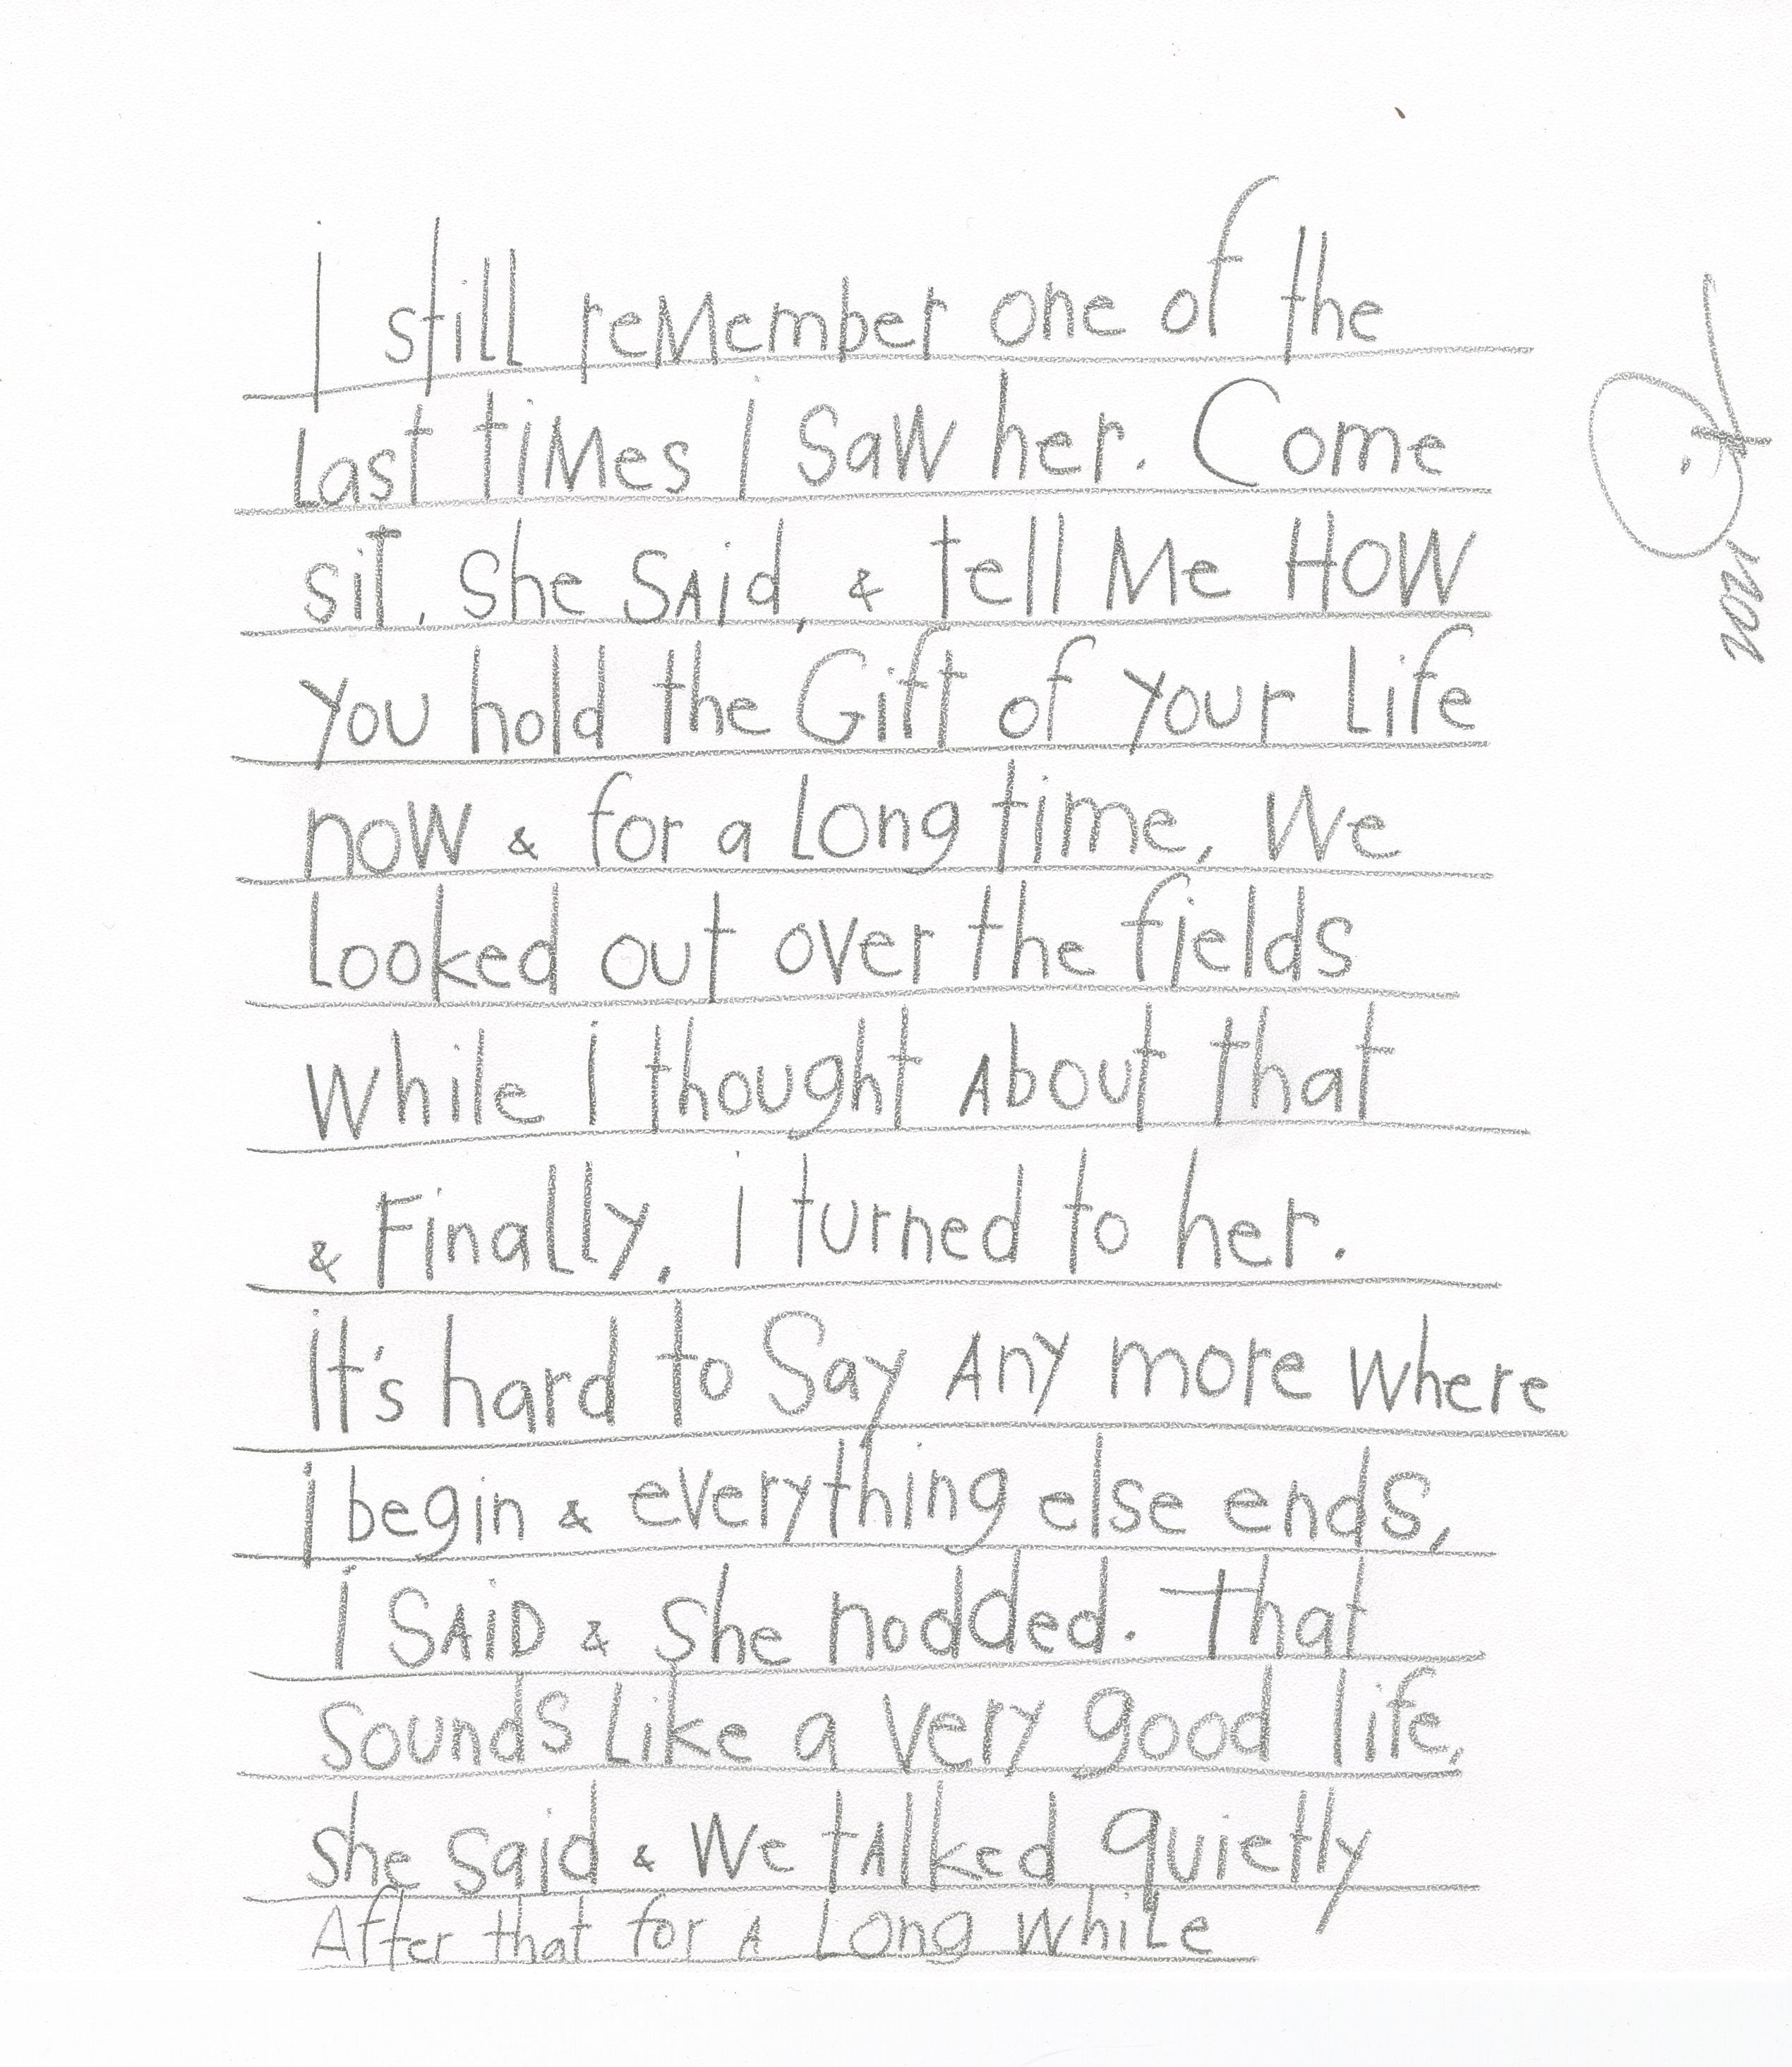 I still reMember one of the
Last tiMes I SaW her. Come
sit, She SAid, & tell Me HOW
you hold the Gift of your Life
noW & for a Long time, We
Looked out over the fields
While I thought About that
& Finally, I turned to her.
It's hard to Say Any more Where
I begin & everything else ends,
I SAiD & She nodded. That
Sounds Like a Very good life,
she said & We tAlked quietly
After that for A Long While